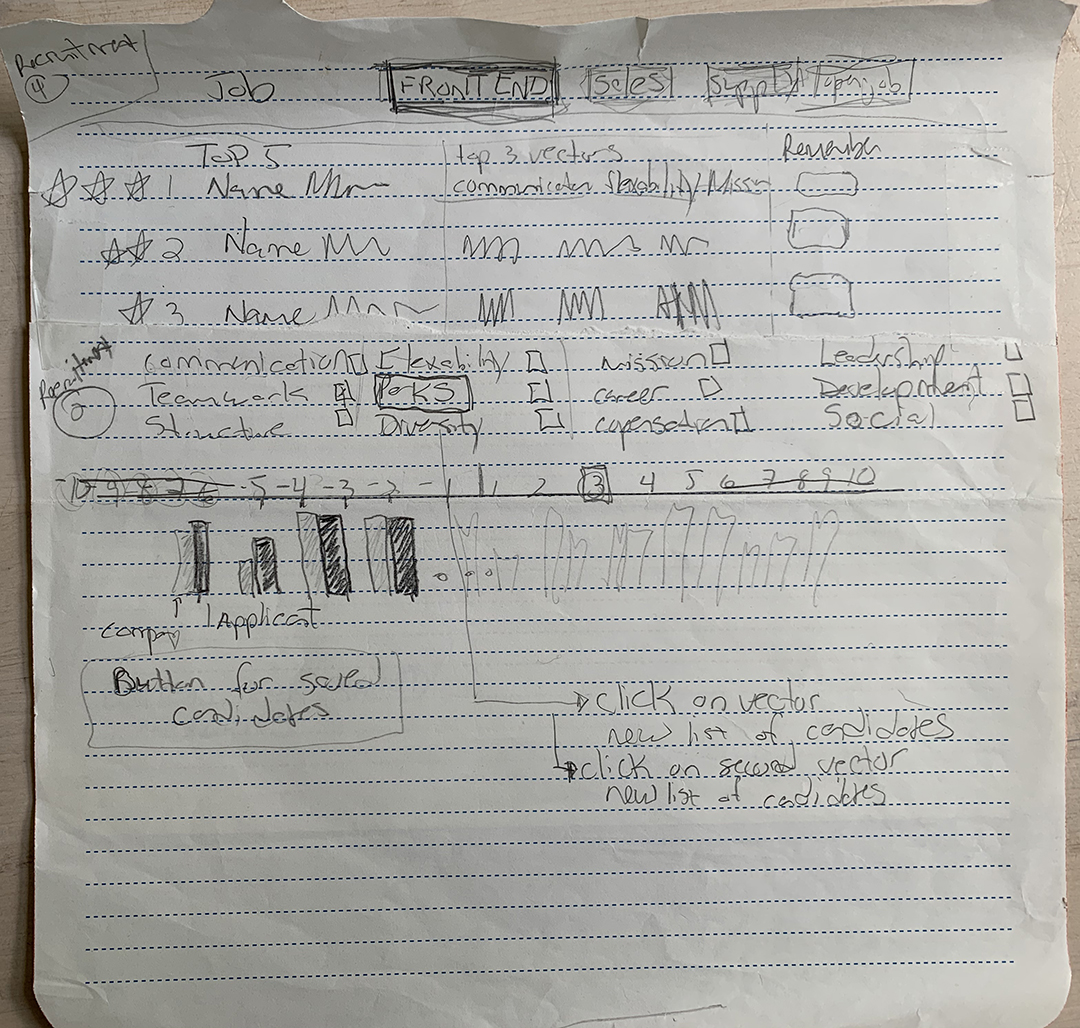 Recruitment
4
Job FRONTEND Sales Support Open job
TOP 5 top 3 vectors Remember
1 Name communication flexability/Mission
2 Name
3 Name
Recruitment
Communication Flexability mission Leadership
Teamwork Perks career Development
Structure Diversity Social
-10 -9 -8 -7 -6 -5 -4 -3 -2 -1 1 2 3 4 5 6 7 8 9 10
company Applicant
Button for saved
candidates
click on vector
new list of candidates
click on second vector
new list of candidates